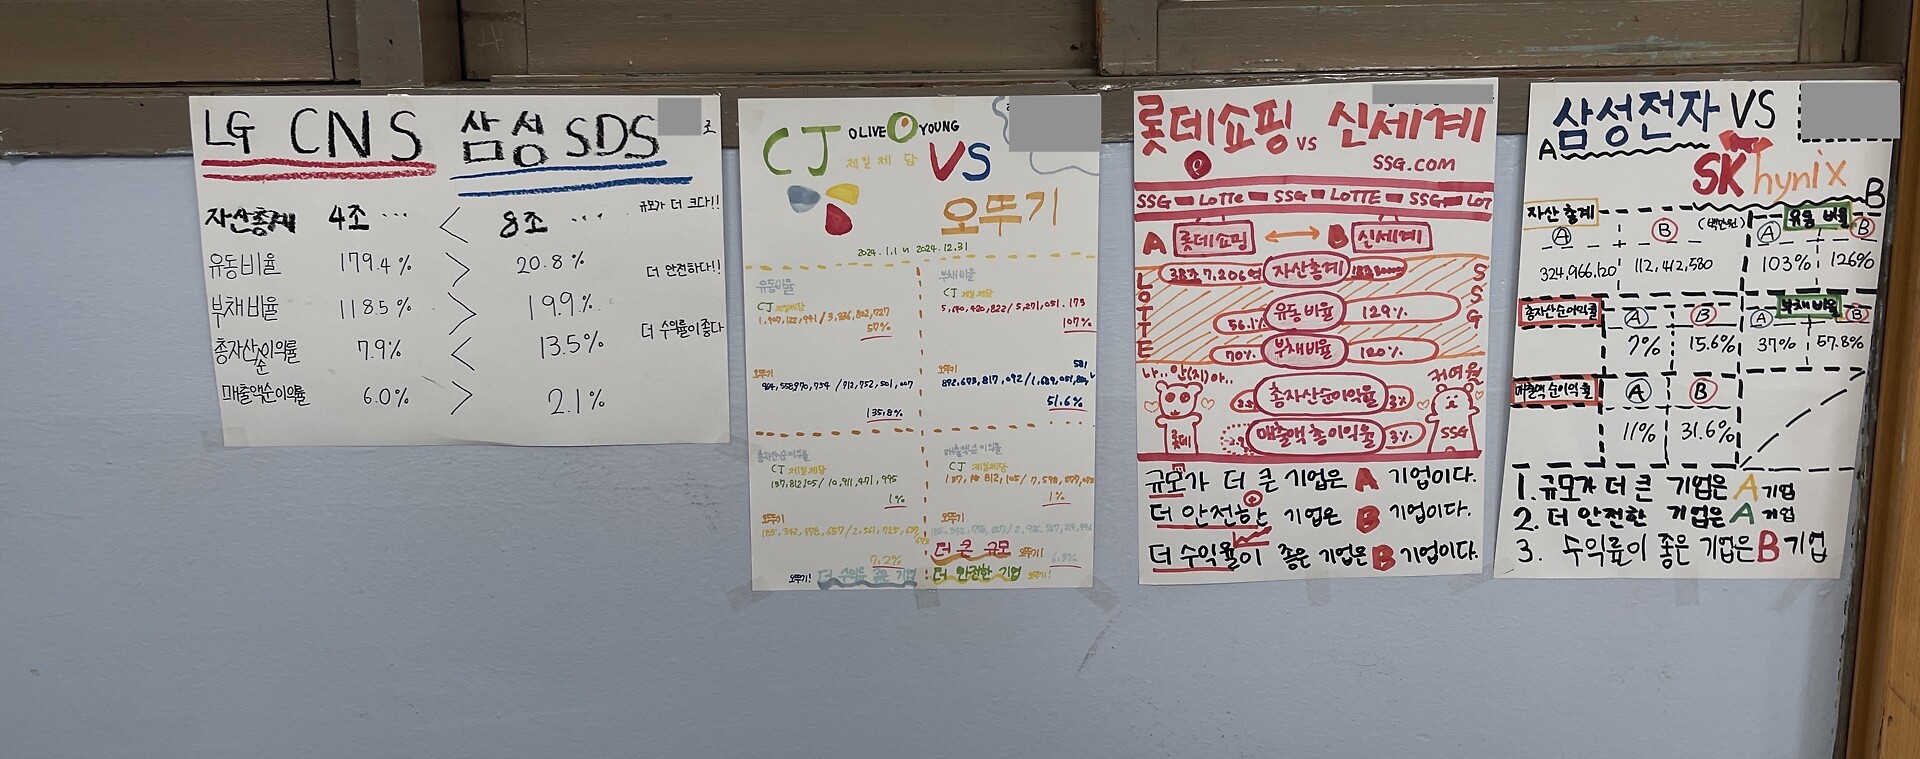 LG CNS 삼성 SDS 조
자산총계 4조 ... < 8조 ... 규모가 더 크다!!
유동비율 179.4% > 20.8% 더 안전하다!!
부채비율 118.5% > 19.9%
총자산순이익률 7.9% < 13.5% 더 수익률이 좋다
매출액순이익률 6.0% > 2.1%
CJ OLIVE YOUNG
제일제당 VS
오뚜기
2024.1.1 ~ 2024.12.31
유동비율
CJ 제일제당
57%
오뚜기
964,558,970,754 / 712,752,501,007
135.8%
부채비율
CJ 제일제당
107%
오뚜기
51.6%
총자산순이익률
CJ 제일제당
137,812,105 / 10,911,471,995
1%
오뚜기
7.2%
오뚜기! 더 수익률 좋은 기업
매출액순이익률
CJ 제일제당
1%
오뚜기
더 큰 규모 오뚜기!
더 안전한 기업 오뚜기!
롯데쇼핑 VS 신세계
SSG.COM
SSG LOTTE SSG LOTTE SSG LOT
A 롯데쇼핑 ↔ B 신세계
LOTTE
SSG
38조 7,206억 자산총계
56.1% 유동비율 129%
70% 부채비율 120%
나..안(지)아.. 귀여월
총자산순이익률 3%
매출액총이익률 3%
롯데 SSG
규모가 더 큰 기업은 A 기업이다.
더 안전한 기업은 B 기업이다.
더 수익률이 좋은 기업은 B 기업이다.
삼성전자 VS
A SK hynix B
자산총계 (백만원)
A B
324,966,120 112,412,580
유동비율
A B
103% 126%
총자산순이익률
A B
7% 15.6%
부채비율
A B
37% 57.8%
매출액순이익률
A B
11% 31.6%
1. 규모가 더 큰 기업은 A 기업
2. 더 안전한 기업은 A 기업
3. 수익률이 좋은 기업은 B 기업